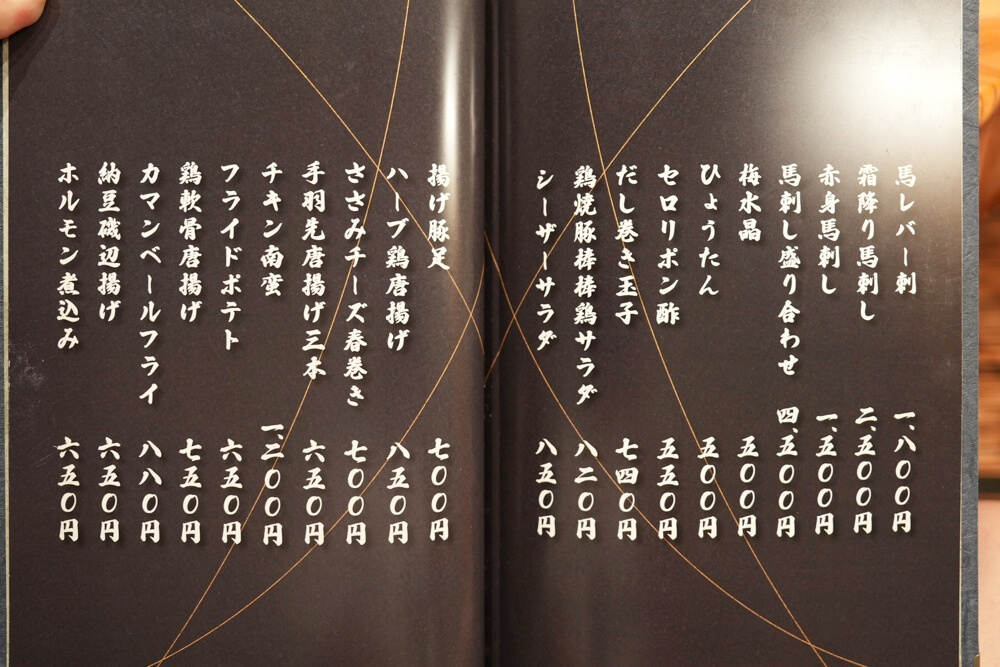 馬レバー刺 一、八〇〇円
霜降り馬刺し 二、五〇〇円
赤身馬刺し 一、五〇〇円
馬刺し盛り合わせ 四、五〇〇円
梅水晶 五〇〇円
ひょうたん 五〇〇円
セロリポン酢 五五〇円
だし巻き玉子 七四〇円
鶏焼豚棒棒鶏サラダ 八二〇円
シーザーサラダ 八五〇円
揚げ豚足 七〇〇円
ハーブ鶏唐揚げ 八五〇円
ささみチーズ春巻き 七〇〇円
手羽先唐揚げ三本 六五〇円
チキン南蛮 一、二〇〇円
フライドポテト 六五〇円
鶏軟骨唐揚げ 七五〇円
カマンベールフライ 八八〇円
納豆磯辺揚げ 六五〇円
ホルモン煮込み 六五〇円